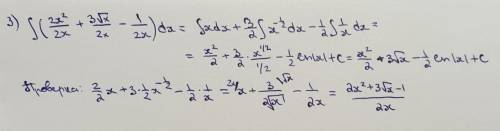 3) ∫(2x²/2x + 3√x/2x − 1/2x)dx = ∫xdx + 3/2∫x^(-1/2)dx − 1/2∫1/x dx =
= x²/2 + 3/2 · x^(1/2)/(1/2) − 1/2 ln|x| + C = x²/2 + 3√x − 1/2 ln|x| + C
Проверка: 2/2 x + 3 · 1/2 x^(-1/2) − 1/2 · 1/x = x + 3/2√x − 1/2x = (2x² + 3√x − 1)/2x